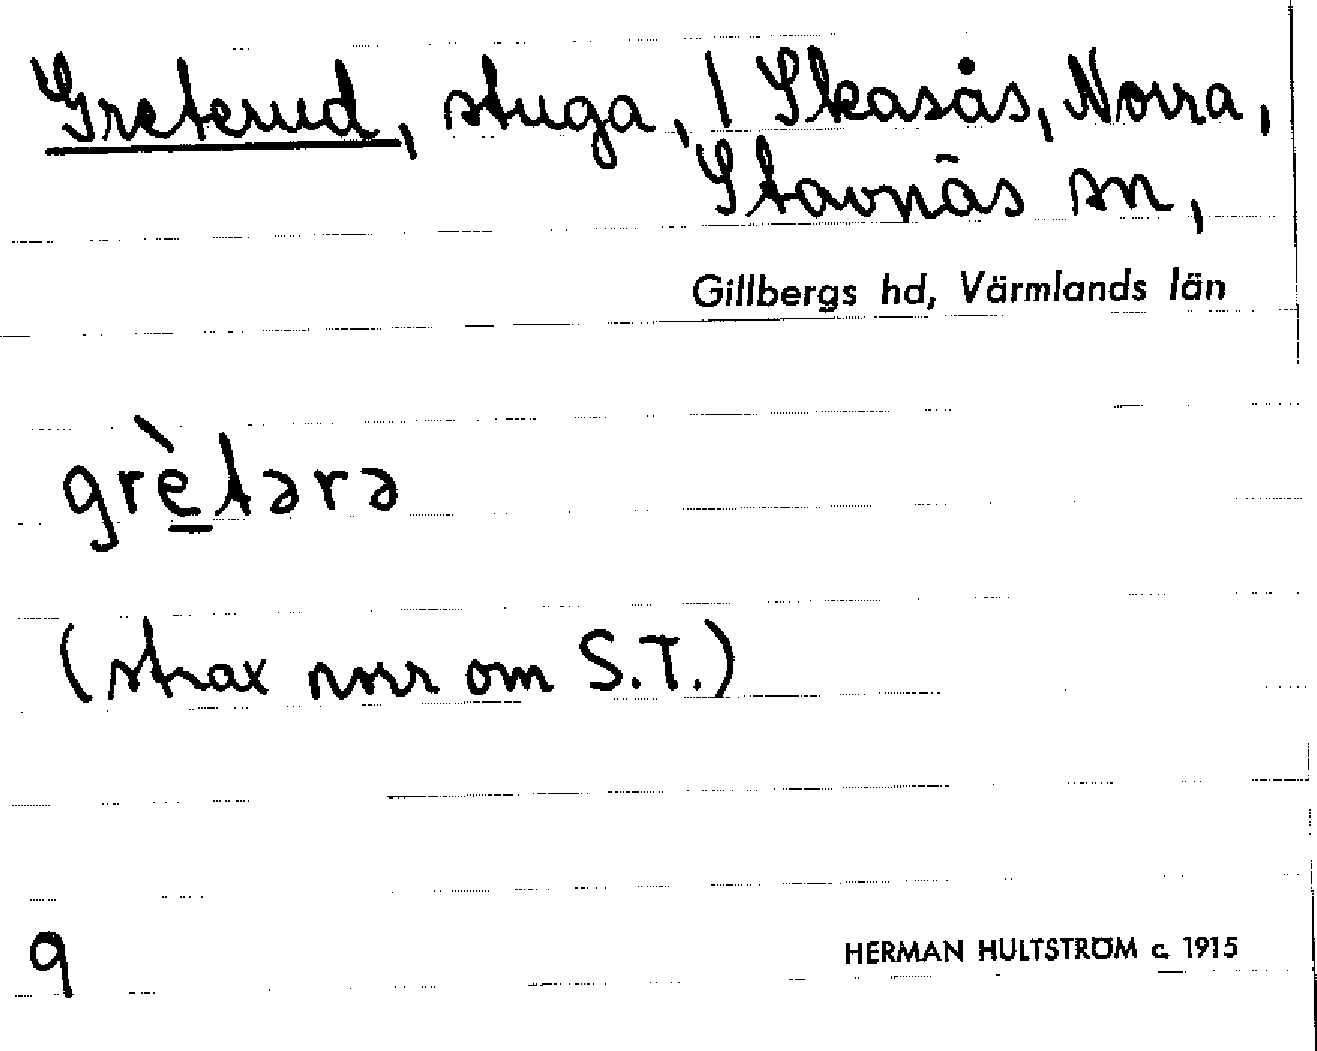 Greterud, stuga, / Skasås, Norra,
Stavnäs sn,
Gillbergs hd, Värmlands län
grè̲tərə
(strax norr om S.T.)
9
HERMAN HULTSTRÖM c. 1915